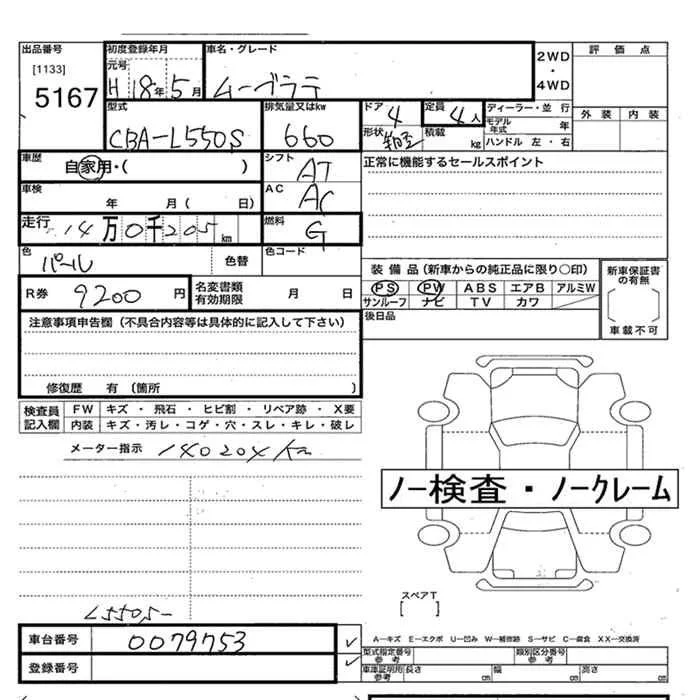 出品番号 初度登録年月 車名・グレード 評価点
[1133] 元号 2WD
5167 H 18年 5月 ムーヴラテ ・
4WD
型式 排気量又はkw ドア 4 定員 4人 ディーラー・並行 外装 内装
CBA-L550S 660 形状 積載 kg モデル年式 年
ハンドル 左・右
車歴 自家用・( ) シフト AT 正常に機能するセールスポイント
車検 年 月( 日) AC AC
走行 14万0千205km 燃料 G
色 パール 色替 色コード
装備品(新車からの純正品に限り○印) 新車保証書の有無
R券 9200円 名変書類有効期限 月 日 PS PW ABS エアB アルミW
サンルーフ ナビ TV カワ 車載不可
注意事項申告欄(不具合内容等は具体的に記入して下さい) 後日品
修復歴 有(箇所 )
検査員記入欄 FW キズ・飛石・ヒビ割・リペア跡・X要
内装 キズ・汚レ・コゲ・穴・スレ・キレ・破レ
メーター指示 140204km
ノー検査・ノークレーム
スペアT
[ ]
L550S-
車台番号 0079753 ✓
A―キズ E―エクボ U―凹み W―補修跡 S―サビ C―腐食 XX―交換済
登録番号 ✓ 型式指定番号参考 類別区分番号参考
車庫証明用参考 長さ cm 幅 cm 高さ cm